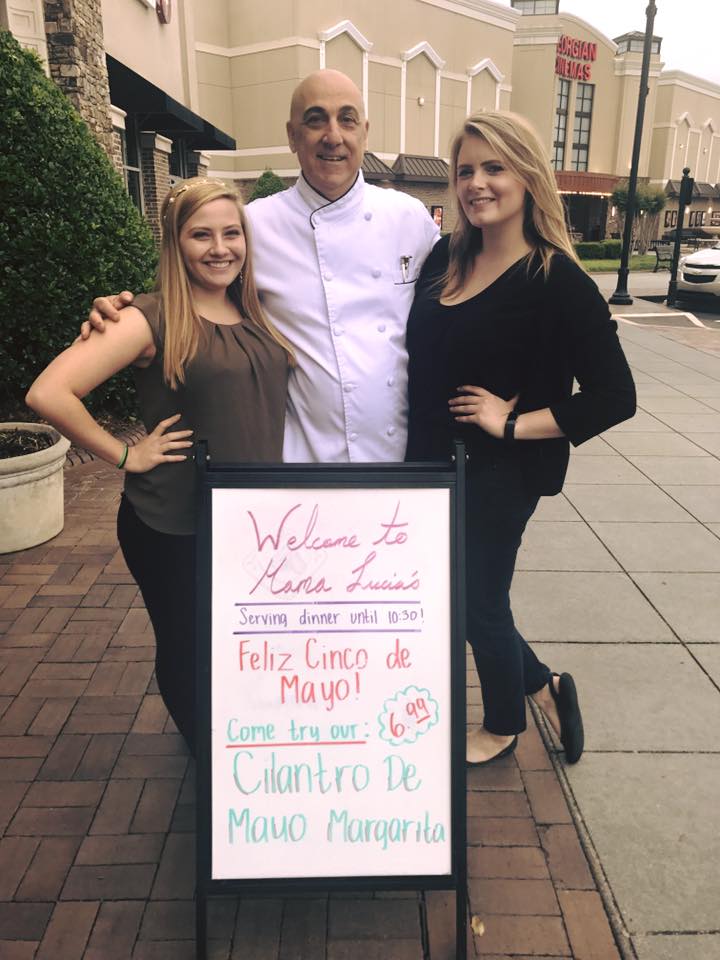 GEORGIAN
CINEMAS
Welcome to
Mama Lucia's
Serving dinner until 10:30!
Feliz Cinco de
Mayo!
Come try our: 6.99
Cilantro De
Mayo Margarita